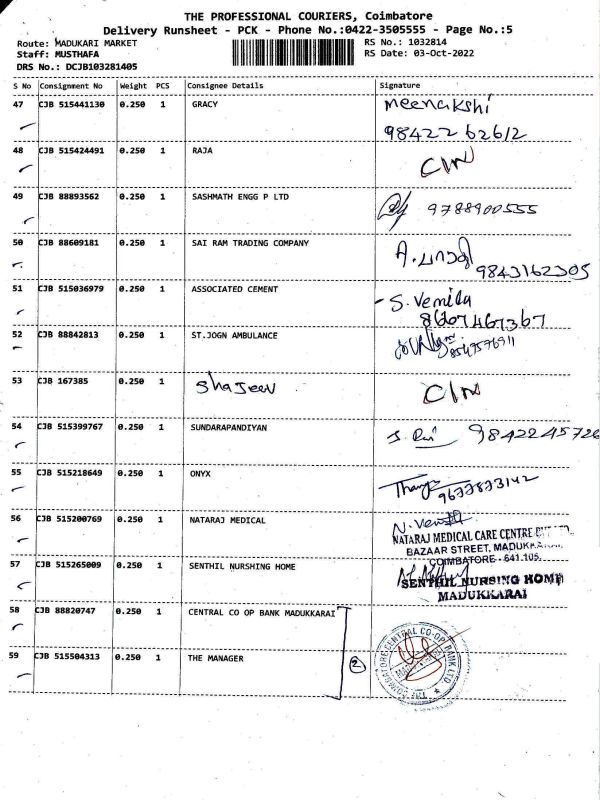 THE PROFESSIONAL COURIERS, Coimbatore
Delivery Runsheet - PCK - Phone No.:0422-3505555 - Page No.:5
Route: MADUKARI MARKET RS No.: 1032814
Staff: MUSTHAFA RS Date: 03-Oct-2022
DRS No.: DCJB103281405
S No Consignment No Weight PCS Consignee Details Signature
47 CJB 515441130 0.250 1 GRACY meenakshi
98422 62612
48 CJB 515424491 0.250 1 RAJA
49 CJB 88893562 0.250 1 SASHMATH ENGG P LTD 9788900555
50 CJB 88609181 0.250 1 SAI RAM TRADING COMPANY
9843162305
51 CJB 515036979 0.250 1 ASSOCIATED CEMENT S. Vemila
8607467367
52 CJB 88842813 0.250 1 ST.JOGN AMBULANCE
53 CJB 167385 0.250 1 Shajeev
54 CJB 515399767 0.250 1 SUNDARAPANDIYAN 9842245726
55 CJB 515218649 0.250 1 ONYX
9677833142
56 CJB 515200769 0.250 1 NATARAJ MEDICAL
NATARAJ MEDICAL CARE CENTRE
BAZAAR STREET,
COIMBATORE - 641 105.
57 CJB 515265009 0.250 1 SENTHIL NURSHING HOME
SENTHIL NURSING HOME
MADUKKARAI
58 CJB 88820747 0.250 1 CENTRAL CO OP BANK MADUKKARAI
59 CJB 515504313 0.250 1 THE MANAGER 2
THE COIMBATORE CENTRAL CO-OP BANK LTD.